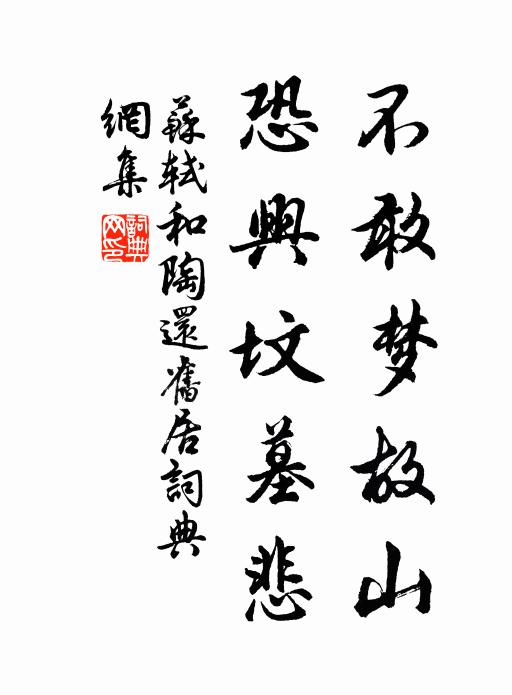 不敢梦故山
恐興坟墓悲
蘇軾和陶還舊居詞典
網集
詞典
网印